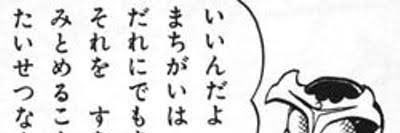 いいんだよ
まちがいは
だれにでも
それを　す
みとめるこ
たいせつな